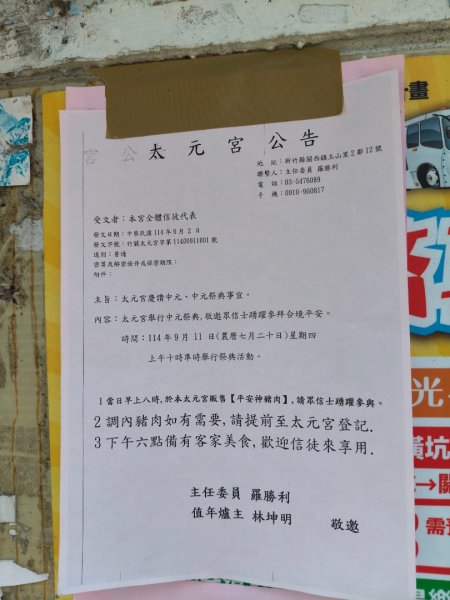 宮 公 太 元 宮 公 告
地 址：新竹縣關西鎮玉山里2鄰12號
聯繫人：主任委員 羅勝利
電 話：03-5476089
手 機：0910-960817
受文者：本宮全體信徒代表
發文日期：中華民國114年9月2日
發文字號：竹關太元宮字第11400911001號
速別：普通
密等及解密條件或保密期限：
附件：
主旨：太元宮慶讚中元、中元祭典事宜。
內容：太元宮舉行中元祭典，敬邀眾信士踴躍參拜合境平安。
時間：114年9月11日(農曆七月二十日)星期四
上午十時準時舉行祭典活動。
1當日早上八時，於本太元宮販售【平安神豬肉】，請眾信士踴躍參與。
2調內豬肉如有需要，請提前至太元宮登記.
3下午六點備有客家美食，歡迎信徒來享用.
主任委員 羅勝利
值年爐主 林坤明
敬邀
畫
光
橫坑
→關
需